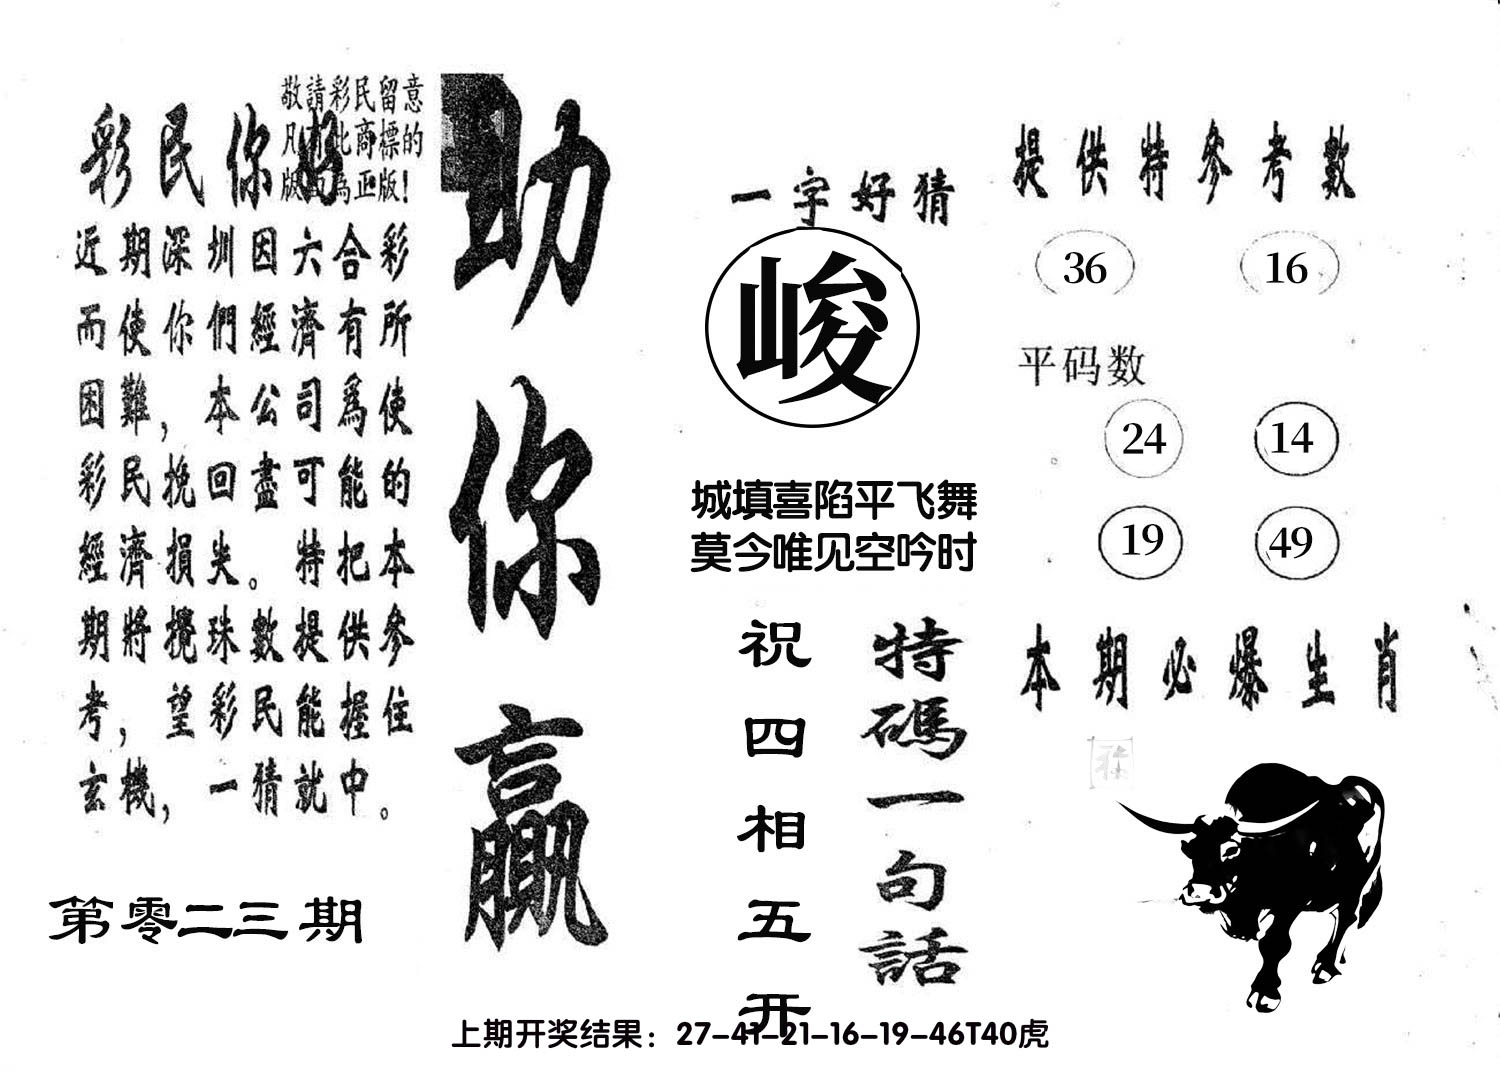 敬請彩民留意
凡有此商標的
版面為正版！
彩民你好
近期深圳因六合彩
而使你們經濟有所
困難，本公司爲使
彩民挽回盡可能的
經濟損失。特把本
期將攪珠數提供參
考，望彩民能握住
玄機，一猜就中。
第零二三期
助你赢
一字好猜
峻
城填喜陷平飞舞
莫今唯见空吟时
特碼一句話
祝四相五开
提供特參考數
36 16
平码数
24 14
19 49
本期必爆生肖
上期开奖结果：27-41-21-16-19-46T40虎